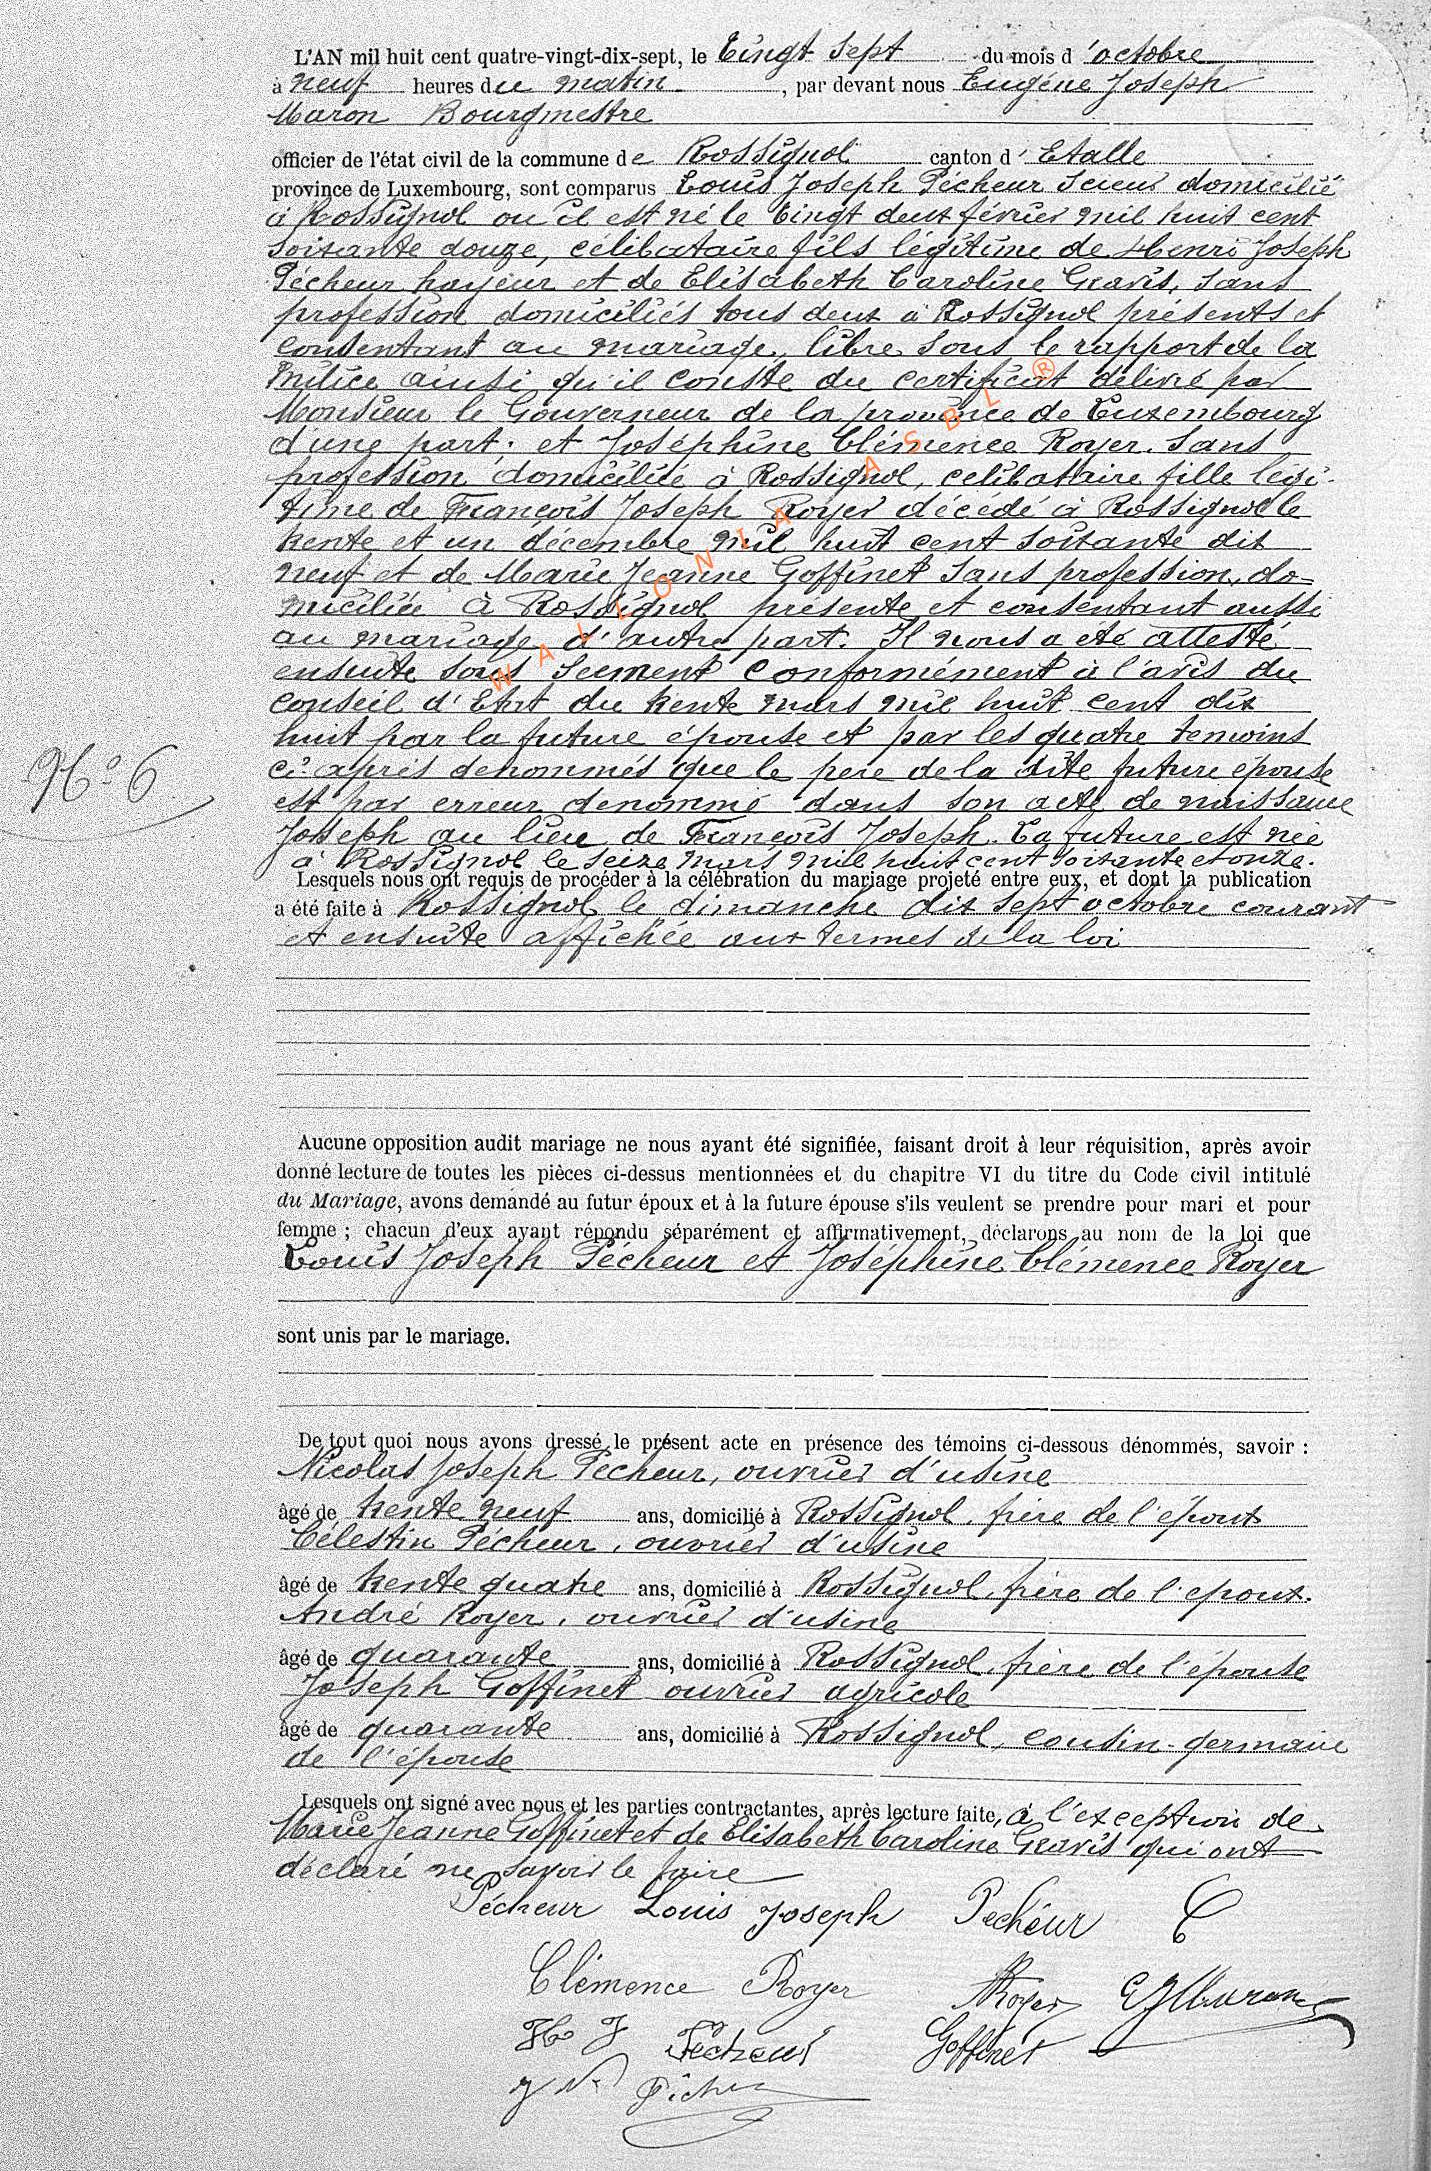 L'AN mil huit cent quatre-vingt-dix-sept, le vingt sept du mois d'octobre
à neuf heures du matin, par devant nous Eugéne Joseph
Maron Bourgmestre
officier de l'état civil de la commune de Rossignol canton d'Etalle
province de Luxembourg, sont comparus Louis Joseph Pécheur scieur domicilié
à Rossignol ou il est né le vingt deux février mil huit cent
soixante douze, célibataire fils légitime de Henri Joseph
Pécheur hayeur et de Elisabeth Caroline Gravis, sans
profession domiciliés tous deux à Rossignol présents et
consentant au mariage, libre sous le rapport de la
milice ainsi qu'il conste du certificat délivré par
Monsieur le Gouverneur de la province de Luxembourg
d'une part; et Joséphine Clémence Royer sans
profession domiciliée à Rossignol, celibataire fille légi-
time de François Joseph Royer décédé à Rossignol le
trente et un décembre mil huit cent soixante dix
neuf et de Marie Jeanne Goffinet sans profession, do=
miciliée à Rossignol présente et consentant aussi
au mariage d'autre part. Il nous a été attesté
ensuite sous serment conformément à l'avis du
conseil d'Etat du trente mars mil huit cent dix
huit par la future épouse et par les quatre temoins
ci-après denommés que le pere de la dite future épouse
est par erreur denommé dans son acte de naissance
Joseph au lieu de François Joseph. La future est née
à Rossignol le seize mars mil huit cent soixante et onze.
N° 6
Lesquels nous ont requis de procéder à la célébration du mariage projeté entre eux, et dont la publication
a été faite à Rossignol le dimanche dix sept octobre courant
et ensuite affichée aux termes de la loi
Aucune opposition audit mariage ne nous ayant été signifiée, faisant droit à leur réquisition, après avoir
donné lecture de toutes les pièces ci-dessus mentionnées et du chapitre VI du titre du Code civil intitulé
du Mariage, avons demandé au futur époux et à la future épouse s'ils veulent se prendre pour mari et pour
femme ; chacun d'eux ayant répondu séparément et affirmativement, déclarons au nom de la loi que
Louis Joseph Pécheur et Joséphine Clémence Royer
sont unis par le mariage.
De tout quoi nous avons dressé le présent acte en présence des témoins ci-dessous dénommés, savoir :
Nicolas Joseph Pécheur, ouvrier d'usine
âgé de trente neuf ans, domicilié à Rossignol, frère de l'époux
Célestin Pécheur, ouvrier d'usine
âgé de trente quatre ans, domicilié à Rossignol, frère de l'epoux.
André Royer, ouvrier d'usine
âgé de quarante ans, domicilié à Rossignol, frère de l'épouse
Joseph Goffinet ouvrier agricole
âgé de quarante ans, domicilié à Rossignol, cousin-germain
de l'épouse
Lesquels ont signé avec nous et les parties contractantes, après lecture faite, à l'exception de
Marie Jeanne Goffinet et de Elisabeth Caroline Gravis qui ont
déclaré ne savoir le faire
Pécheur Louis Joseph Pechéur C
Clémence Royer ARoyer EJMaron
H J Pécheur Goffinet
J N
WALLONIA ASBL ®